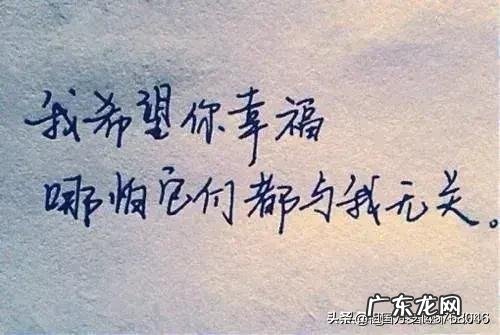 我希望你幸福
哪怕它们都与我无关。
广东龙网